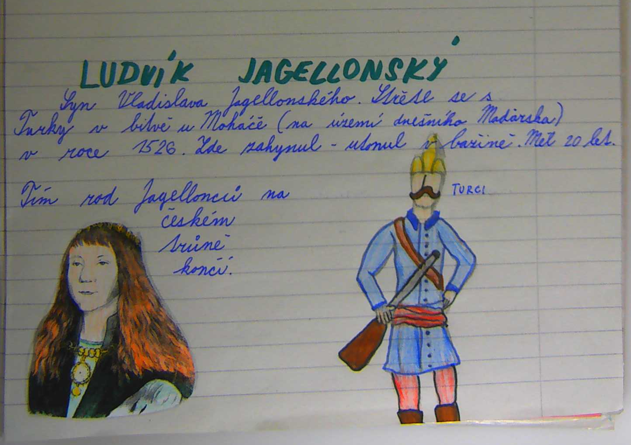 LUDVÍK JAGELLONSKÝ
Syn Vladislava Jagellonského. Střetl se s
Turky v bitvě u Moháče (na území dnešního Maďarska)
v roce 1526. Zde zahynul - utonul v bažině. Měl 20 let.
TURCI
Tím rod Jagellonců na
českém
trůně
končí.